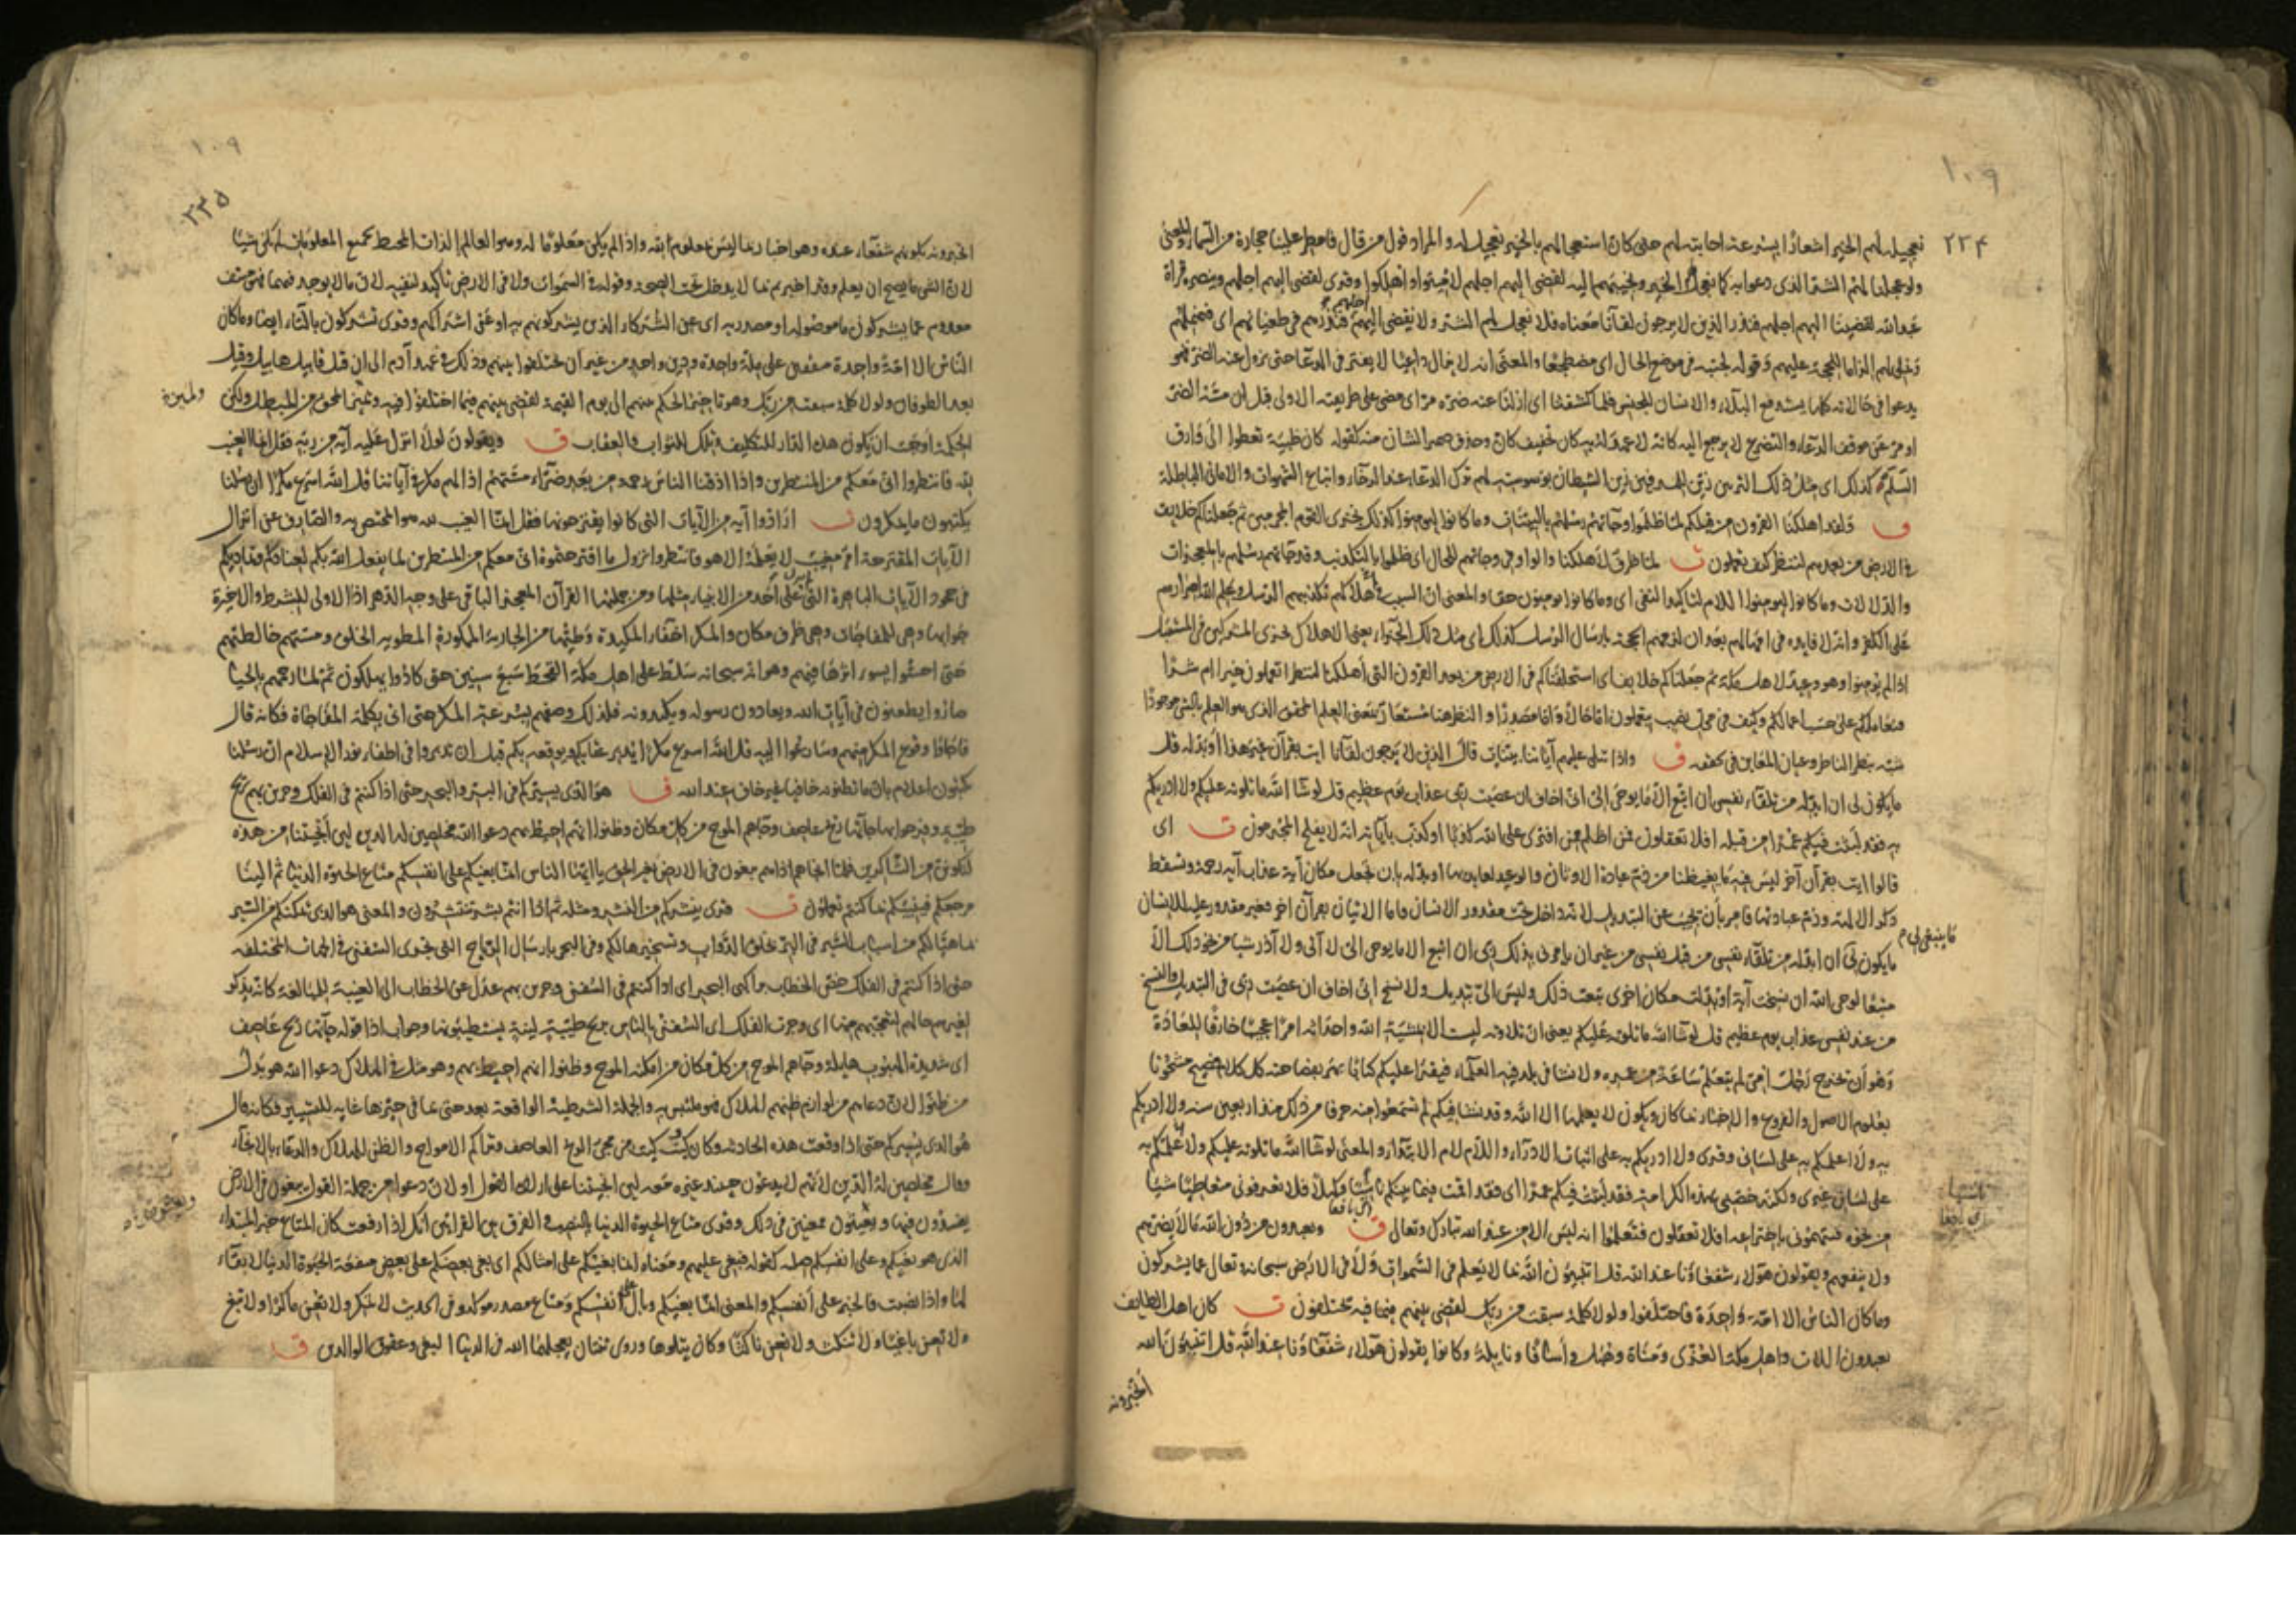 ١٠٩
٢٢۴
تعجيله لهم الخير اشعارا بسرعة اجابته لهم حتى كان استعجالهم بالخير تعجيل له والمراد قول من قال فامطر علينا حجارة من السماء والمعنى
ولو عجلنا لهم الشر الذي دعوا به كما نعجل الخير ونجيبهم اليه لقضي اليهم اجلهم لاميتوا واهلكوا وقرئ لقضى اليهم اجلهم وينصره قراة
عبد الله لقضينا اليهم اجلهم فنذر الذين لا يرجون لقآنا معناه فلا نعجل لهم الشر ولا نقضي اليهم اجلهم فنذرهم في طغيانهم اى فنمهلهم
عليهم وقوله لجنبه في موضع الحال اى مضطجعا والمعنى انه لا يزال داعيا لا يفتر في الدعا حتى يزول عنه الضر فهو
يدعوا في حالاته كلها يستدفع البلاء والانسان للجنس فلما كشفنا اى ازلنا عنه ضره مر اى مضى على طريقته الاولى قبل ان مسه الضر
او مر عن موقف الدعاء والتضرع لا يرجع اليه كانه لا عهد له به كان تخفيف كانّ وحذف ضمير الشان منه كقوله كان ظبية تعطوا الى وارق
السلم كذلك اى مثل ذلك التزيين زين للمسرفين زين الشيطان بوسوسته لهم ترك الدعاء عند الرخاء واتباع الشهوات والامانى الباطلة
ق ولقد اهلكنا القرون من قبلكم لما ظلموا وجاءتهم رسلهم بالبينات وما كانوا ليؤمنوا كذلك نجزى القوم المجرمين ثم جعلناكم خلايف
في الارض من بعدهم لننظر كيف تعملون ت لما ظرف لاهلكنا والواو في وجاتهم للحال اى ظلموا بالتكذيب وقد جاتهم رسلهم بالمعجزات
والدلالات وما كانوا ليؤمنوا اللام لتاكيد النفي اى وما كانوا يومنون حقا والمعنى ان السبب في اهلاكهم تكذيبهم الرسل وعلم الله اصرارهم
على الكفر وانه لا فايده في امهالهم بعد ان لزمهم الحجة بارسال الرسل كذلك اى مثل ذلك الجزاء يعنى الاهلاك نجزى المشركين في المستقبل
اذا لم يومنوا وهو وعيد لاهل مكة ثم جعلناكم خلايف اى استخلفناكم في الارض من بعد القرون التى اهلكنا لننظر اتعملون خيرا ام شرا
فنعاملكم على حسب اعمالكم وكيف في محل نصب بتعملون اما حالا واما مصدرا والنظر هنا مستعار بمعنى العلم المحقق الذى هو العلم بالشئ موجودا
شبه بنظر الناظر وعيان المعاين في تحققه ق واذا تتلى عليهم آياتنا بينات قال الذين لا يرجون لقآنا ايت بقرآن غير هذا او بدله قل
ما يكون لى ان ابدله من تلقاء نفسى ان اتبع الا ما يوحى الىّ انى اخاف ان عصيت ربى عذاب يوم عظيم قل لو شا الله ما تلوته عليكم ولا ادريكم
به فقد لبثت فيكم عمرا من قبله افلا تعقلون فمن اظلم ممن افترى على الله كذبا او كذب بآياته انه لا يفلح المجرمون ت اى
قالوا ايت بقرآن آخر ليس فيه ما يغيظنا من ذم عبادة الاوثان والوعيد لعابديها او بدله بان تجعل مكان آية عذاب آية رحمة وتسقط
ذكر الالهة وذم عبادتها فامر بان يجيب عن التبديل لانه داخل تحت مقدور الانسان واما الاتيان بقرآن آخر فغير مقدور عليه للانسان
ما ينبغى لى م
ما يكون لى ان ابدله من تلقاء نفسى من قبل نفسى من غير ان يامرنى بذلك ربى ان اتبع الا ما يوحى الى لا آتى ولا آذر شيا من نحو ذلك الا
متبعا لوحى الله ان نسخت آية او بدلت مكان اخرى تبعت ذلك وليس الىّ تبديل ولا نسخ انى اخاف ان عصيت ربى في التبديل والنسخ
من عند نفسى عذاب يوم عظيم قل لو شا الله ما تلوته عليكم يعنى ان تلاوته ليست الا بمشية الله واحداثه امرا عجيبا خارقا للعادة
وهو ان يخرج رجل امى لم يتعلم ساعة من عمره ولا نشا في بلد فيه العلماء فيقرا عليكم كتابا بهر بفصاحته كل كلام فصيح مشحونا
بعلوم الاصول والفروع والاخبار عما كان ويكون لا يعلمها الا الله وقد نشا فيكم لم تسمعوا منه حرفا من ذلك منذ اربعين سنه ولا ادريكم
به ولا اعلمكم به على لسانى وقرئ ولا ادريكم به على اثبات الادراء واللام لام الابتداء والمعنى لو شا الله ما تلوته عليكم ولا علمكم به
على لسان غيرى ولكنه خصنى بهذه الكرامة فقد لبثت فيكم عمرا اى فقد اقمت فيما بينكم ناشيا وكهلا فلا تعرفونى متعاطيا شيا
من نحوه فتتهمونى باختراعه افلا تعقلون فتعلموا انه ليس الا من عند الله تبارك وتعالى ق ويعبدون من دون الله ما لا يضرهم
ولا ينفعهم ويقولون هؤلاء شفعاؤنا عند الله قل اتنبؤن الله بما لا يعلم في السموات ولا في الارض سبحانه وتعالى عما يشركون
وما كان الناس الا امة واحدة فاختلفوا ولولا كلمة سبقت من ربك لقضى بينهم فيما فيه يختلفون ت كان اهل الطايف
يعبدون اللات واهل مكة العزى ومناة وهبل واسافا ونايلة وكانوا يقولون هؤلاء شفعاؤنا عند الله قل اتنبؤن الله
اتخبرونه
١٠٩
٢٣۵
اتخبرونه بكونهم شفعاء عنده وهو اخبار بما ليس بمعلوم لله واذا لم يكن معلوما له وهو العالم الذات المحيط بجميع المعلومات لم يكن شيئا
لان الشى ما يصح ان يعلم وقد اخبرتم بما لا يدخل تحت الصحة وقوله في السموات ولا في الارض تاكيد لنفيه لان ما لا يوجد فيهما فهو منتف
معدوم عما يشركون ما موصوله او مصدريه اى عن الشركاء الذين يشركونهم به او عن اشراكهم وقرئ تشركون بالتاء ايضا وما كان
الناس الا امة واحدة متفقين على ملة واحدة ودين واحد من غير ان يختلفوا بينهم وذلك في عهد آدم الى ان قتل قابيل هابيل وقيل
بعد الطوفان ولولا كلمة سبقت من ربك وهو تاخير الحكم بينهم الى يوم القيمة لقضى بينهم فيما اختلفوا فيه وتميز المحق من المبطل ولكن
الحكمة اوجبت ان يكون هذه الدار للتكليف وتلك للثواب والعقاب ق ويقولون لولا انزل عليه آية من ربه فقل انما الغيب
لله فانتظروا انى معكم من المنتظرين واذا اذقنا الناس رحمة من بعد ضراء مستهم اذا لهم مكر في آياتنا قل الله اسرع مكرا ان رسلنا
يكتبون ما يمكرون ت ارادوا آية من الآيات التى كانوا يقترحونها فقل انما الغيب لله هو المختص به والصارف عن انزال
الآيات المقترحة امر مغيب لا يعلمه الا هو فانتظروا نزول ما اقترحتموه انى معكم من المنتظرين لما يفعل الله بكم لعنادكم وتماديكم
في جحود الآيات الباهرة التى لم تنزل على احد من الانبياء مثلها ومن جملتها القرآن المعجز الباقى على وجه الدهر اذا الاولى للشرط والاخيرة
جوابها وهى للمفاجات وهى ظرف مكان والمكر اخفاء المكيدة وطيها من الجارية الممكورة المطوية الخلق ومستهم خالطتهم
حتى احسوا بسوء اثرها فيهم وهو انه سبحانه سلط على اهل مكة القحط سبع سنين حتى كادوا يهلكون ثم لما رحمهم بالحيا
صاروا يطعنون في آيات الله ويعادون رسوله ويكيدونه فلذلك وصفهم بسرعة المكر حتى اتى بكلمة المفاجاة فكانه قال
فاجاؤا وقوع المكر منهم وسارعوا اليه قل الله اسرع مكرا يدبر عقابكم ويوقعه بكم قبل ان تدبروا في اطفاء نور الاسلام ان رسلنا
يكتبون اعلام بان ما تظنونه خافيا غير خاف عند الله ق هو الذى يسيركم في البر والبحر حتى اذا كنتم في الفلك وجرين بهم بريح
طيبة وفرحوا بها جاتها ريح عاصف وجاهم الموج من كل مكان وظنوا انهم احيط بهم دعوا الله مخلصين له الدين لين انجيتنا من هذه
لنكونن من الشاكرين فلما انجاهم اذا هم يبغون في الارض بغير الحق يا ايها الناس انما بغيكم على انفسكم متاع الحيوة الدنيا ثم الينا
مرجعكم فننبئكم بما كنتم تعملون ت قرئ ينشركم من النشر ومثله ثم اذا انتم بشر تنتشرون والمعنى هو الذى يمكنكم من السير
بما هيا لكم من اسباب السير في البر بخلق الدواب وتسخيرها لكم وفي البحر بارسال الرياح التى تجرى السفن في الجهات المختلفه
حتى اذا كنتم في الفلك خص الخطاب براكبى البحر اى اذا كنتم في السفن وجرين بهم عدل عن الخطاب الى الغيبة للمبالغة كانه يذكر
لغيرهم حالهم لتعجبهم منها اى وجرت الفلك اى السفن بالناس بريح طيبة لينة يستطيبونها وجواب اذا قوله جاتها ريح عاصف
اى شديدة الهبوب هايلة وجاهم الموج من كل مكان من امكنة الموج وظنوا انهم احيط بهم وهو مثل في الهلاك دعوا الله هو بدل
من ظنوا لان دعاءهم من لوازم ظنهم الهلاك فهو ملتبس به والجملة الشرطية الواقعة بعد حتى بما في حيزها غاية للتسيير فكانه قال
هو الذى يسيركم حتى اذا وقعت هذه الحادثة وكان كيت وكيت من مجئ الريح العاصف وتراكم الامواج والظن للهلاك والدعاء بالانجاء
وقال مخلصين له الدين لانهم لا يدعون حينئذ غيره معه لين انجيتنا على ارادة القول او لان دعوا من جملة القول يبغون في الارض
يفسدون فيها ويعيثون ممعنين في ذلك وقرئ متاع الحيوة الدنيا بالنصب والفرق بين القراءتين انك اذا رفعت كان المتاع خبر المبتداء
الذى هو بغيكم وعلى انفسكم صلته كقوله فبغى عليهم ومعناه انما بغيكم على امثالكم اى بغى بعضكم على بعض منفعة الحيوة الدنيا لا بقاء
لها واذا نصبت فالخبر على انفسكم والمعنى انما بغيكم وبال على انفسكم ومتاع مصدر موكد وفي الحديث لا تمكر ولا تعن ماكرا ولا تبغ
ولا تعن باغيا ولا تنكث ولا تعن ناكثا وكان يتلوها وروى ثنتان يعجلهما الله في الدنيا البغى وعقوق الوالدين ق